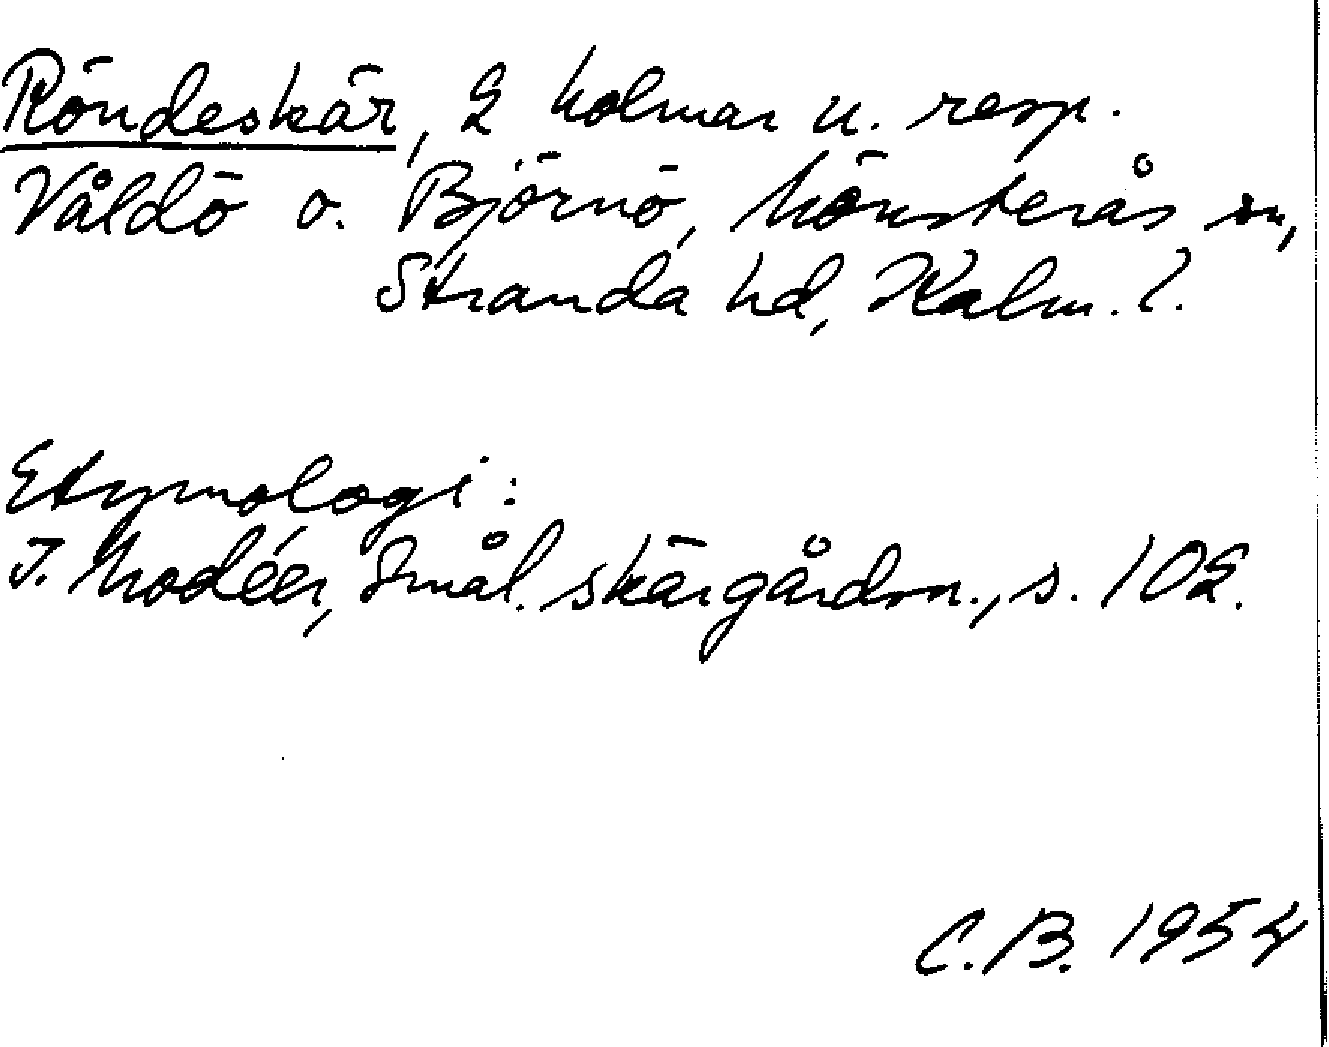 Röndeskär, 2 holmar u. resp.
Våldö o. Björnö, Mönsterås sn,
Stranda hd, Kalm. l.
Etymologi:
I. Modéer, Smål. skärgårdsn., s. 102.
C.B. 1954